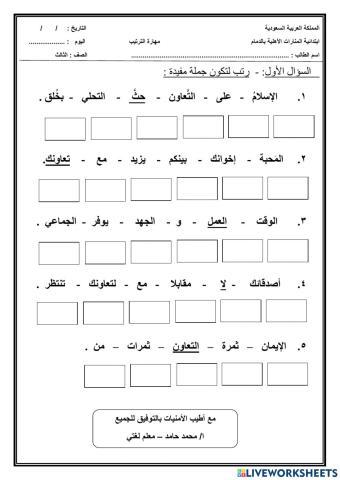 المملكة العربية السعودية
التاريخ : / /
ابتدائية المنارات الأهلية بالدمام
مهارة الترتيب
اليوم : ..................
اسم الطالب : ..................................................................
الصف : الثالث
السؤال الأول: - رتب لتكون جملة مفيدة :
١. الإسلامُ - على - التَّعاون - حثَّ - التحلي - بخُلق .
٢. المَحبة - إخوانك - بينكم - يزيد - مع - تعاونك.
٣. الوقت - العمل - و - الجهد - يوفر - الجماعي .
٤. أصدقائك - لا - مقابلا - مع - لتعاونك - تنتظر .
٥. الإيمان – ثمرة – التعاون – ثمرات – من .
مع أطيب الأمنيات بالتوفيق للجميع
أ/ محمد حامد – معلم لغتي
LIVEWORKSHEETS